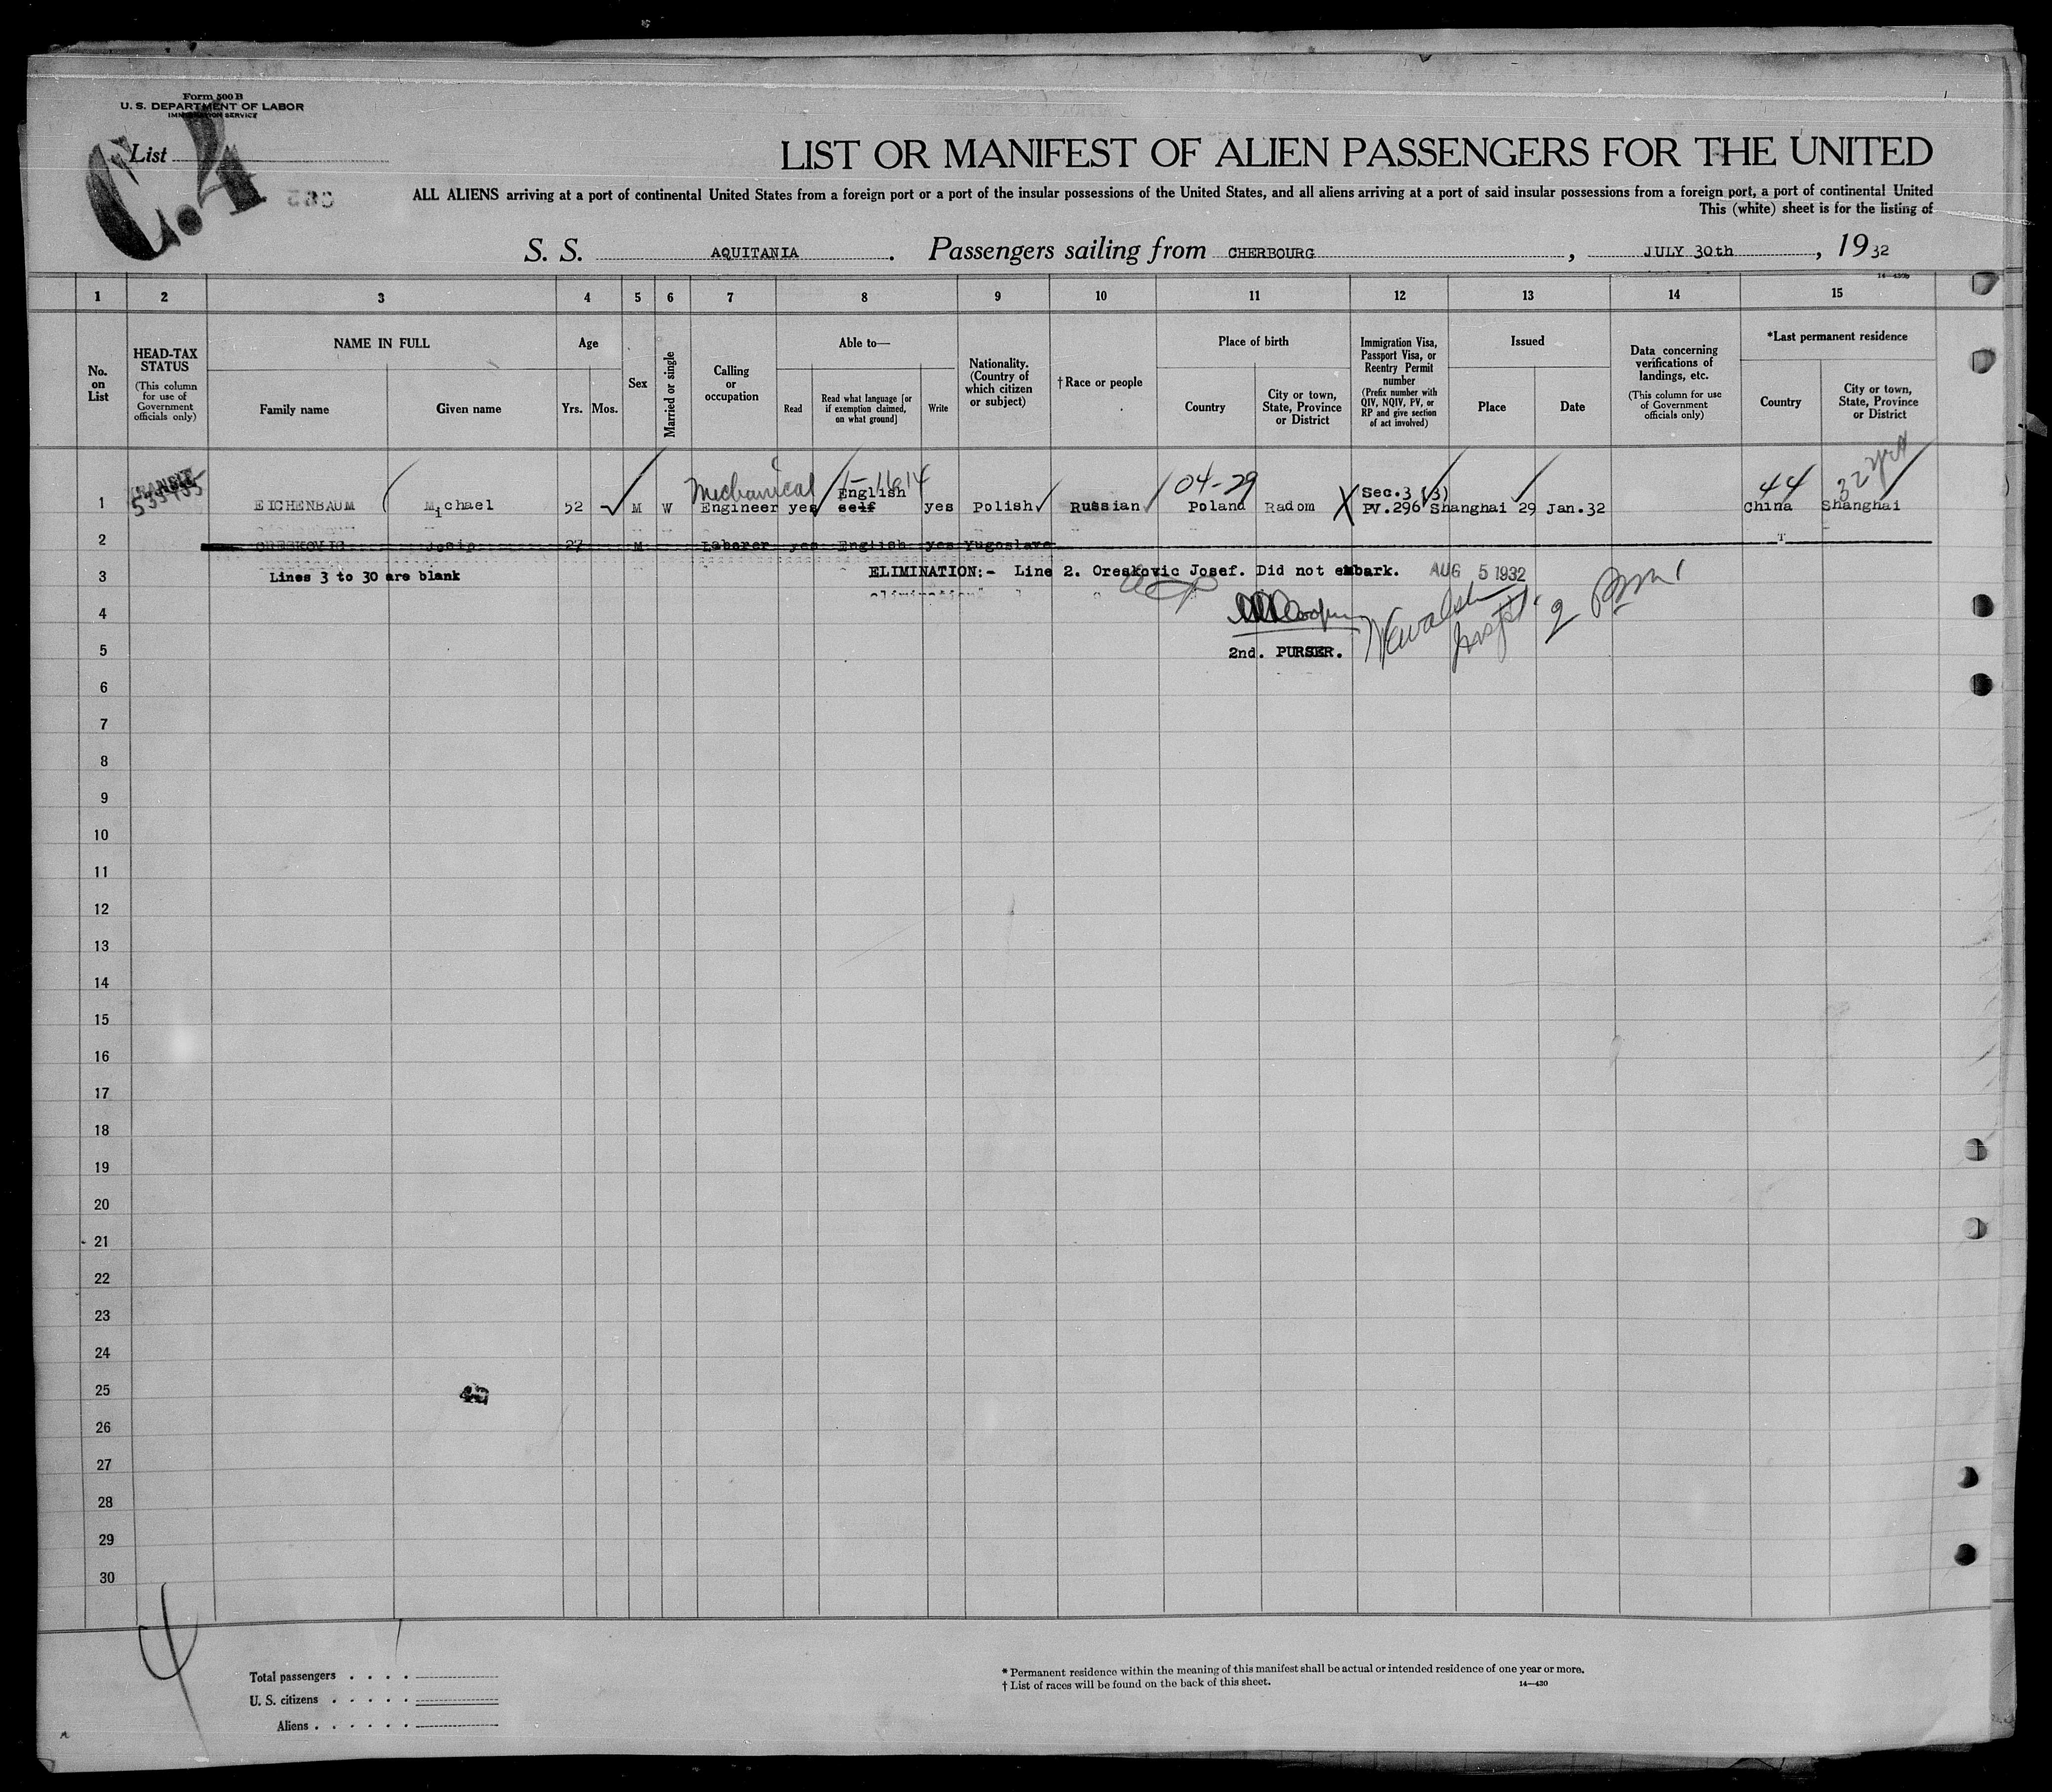 Form 500 B
U. S. DEPARTMENT OF LABOR
IMMIGRATION SERVICE
List
C.4
LIST OR MANIFEST OF ALIEN PASSENGERS FOR THE UNITED
ALL ALIENS arriving at a port of continental United States from a foreign port or a port of the insular possessions of the United States, and all aliens arriving at a port of said insular possessions from a foreign port, a port of continental United
This (white) sheet is for the listing of
S. S. AQUITANIA. Passengers sailing from CHERBOURG, JULY 30th, 1932
14—430b
1 2 3 4 5 6 7 8 9 10 11 12 13 14 15
No. on List
HEAD-TAX STATUS
(This column for use of Government officials only)
NAME IN FULL
Family name
Given name
Age
Yrs. Mos.
Sex
Married or single
Calling or occupation
Able to—
Read
Read what language [or if exemption claimed, on what ground]
Write
Nationality. (Country of which citizen or subject)
†Race or people
Place of birth
Country
City or town, State, Province or District
Immigration Visa, Passport Visa, or Reentry Permit number
(Prefix number with QIV, NQIV, PV, or RP and give section of act involved)
Issued
Place
Date
Data concerning verifications of landings, etc.
(This column for use of Government officials only)
*Last permanent residence
Country
City or town, State, Province or District
TRANSIT Mechanical 1-1614 English 04-29 Sec.3 (3) 44 32 yrs
1 EICHENBAUM Michael 52 M W Engineer yes self yes Polish Russian Poland Radom PV.296 Shanghai 29 Jan.32 China Shanghai
2 ORESKOVIC Josip 27 M Laborer yes English yes Yugoslave
3 Lines 3 to 30 are blank ELIMINATION:- Line 2. Oreskovic Josef. Did not embark. AUG 5 1932
4
2nd. PURSER.
5
6
7
8
9
10
11
12
13
14
15
16
17
18
19
20
21
22
23
24
25
26
27
28
29
30
Total passengers . . . .
U. S. citizens . . . . .
Aliens . . . . . .
* Permanent residence within the meaning of this manifest shall be actual or intended residence of one year or more.
† List of races will be found on the back of this sheet.
14—430